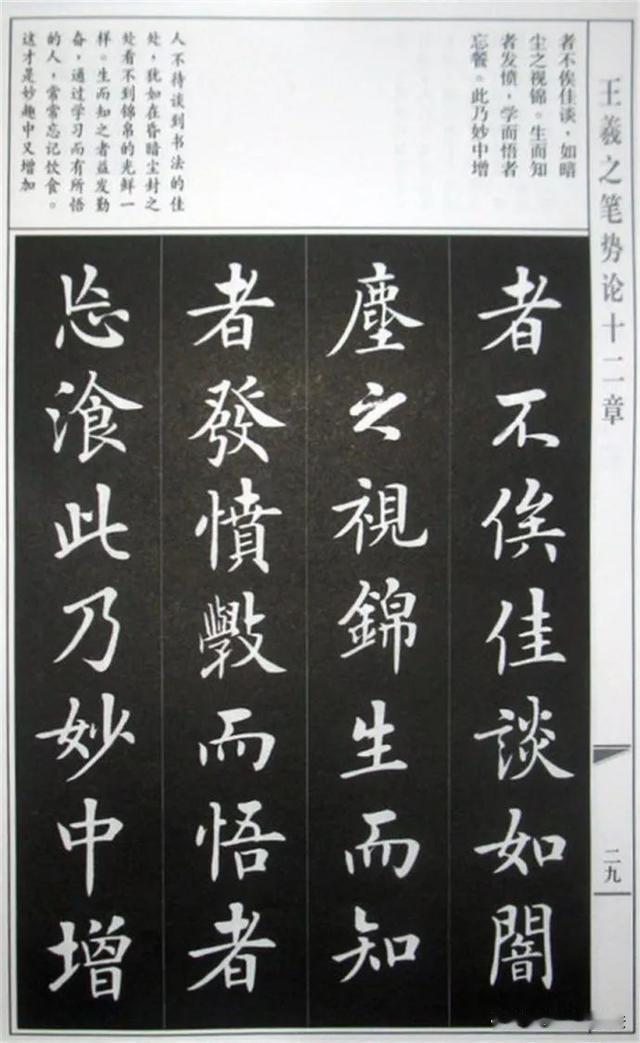 王羲之笔势论十二章
二九
者不俟佳谈，如暗
尘之视锦。生而知
者发愤，学而悟者
忘餐。此乃妙中增
人不待谈到书法的佳
处，犹如在昏暗尘封之
处看不到锦帛的光鲜一
样。生而知之者益发勤
奋，通过学习而有所悟
的人，常常忘记饮食。
这才是妙趣中又增加
者不俟佳談如闇
塵之視錦生而知
者發憤斅而悟者
忘飡此乃妙中增